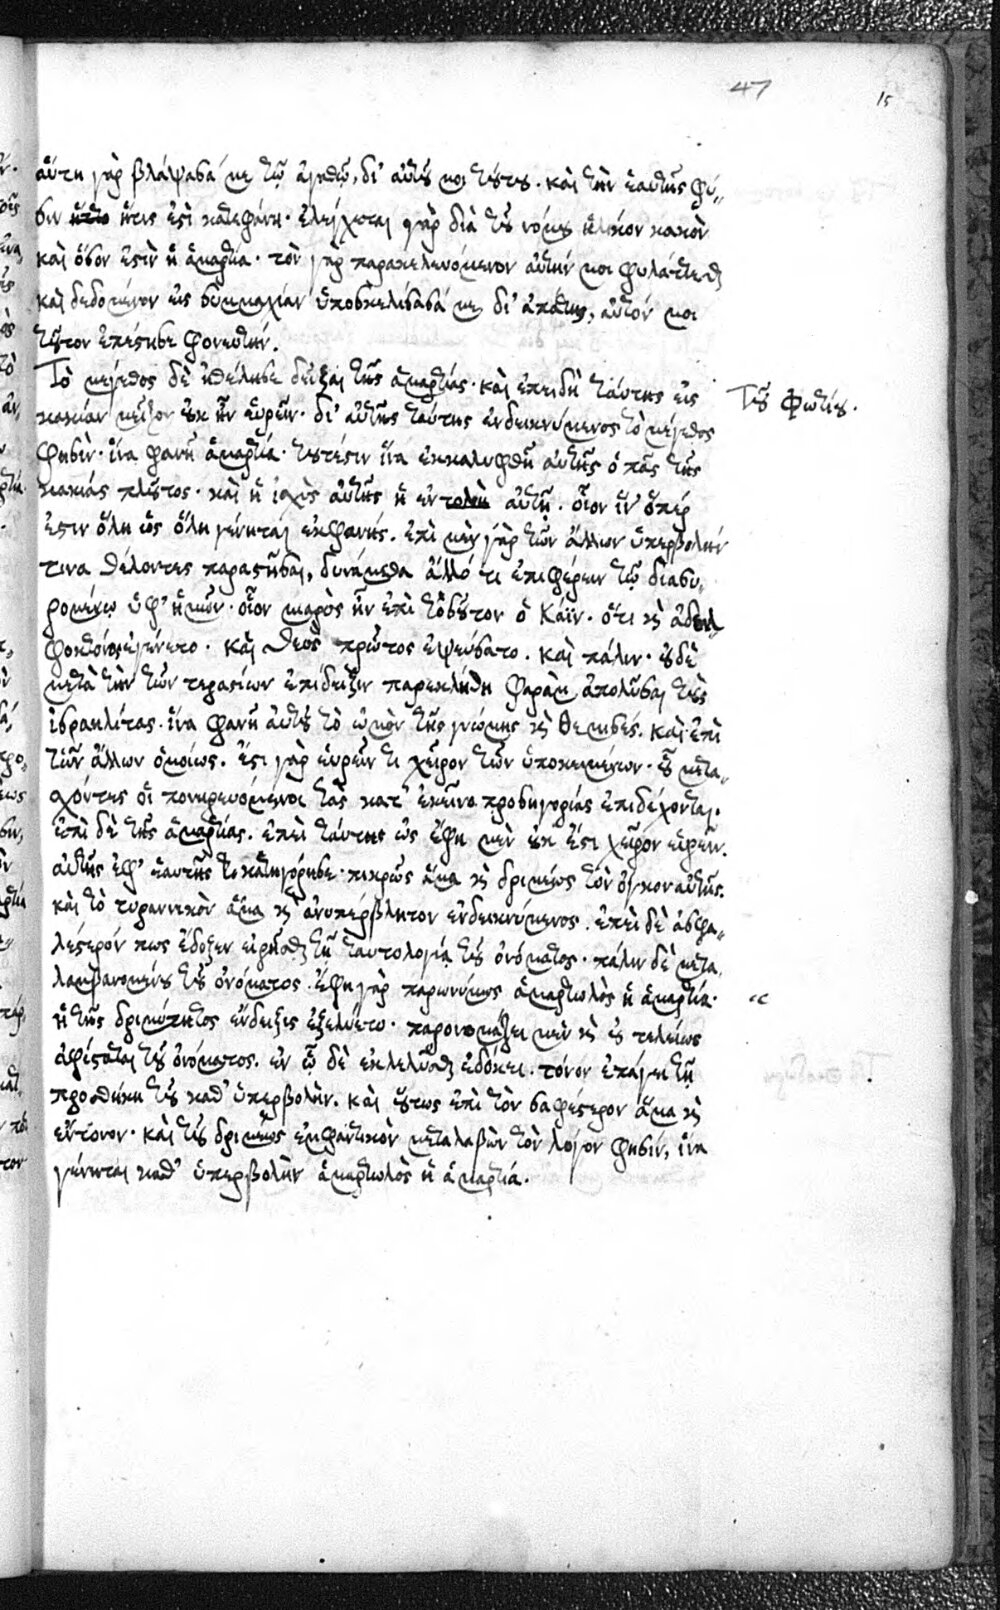 47
15
αὕτη γὰρ βλάψασά με τῷ ἀγαθῷ, δι' αὐτοῦ μοι τούτου. καὶ τὴν ἑαυτῆς φύ-
σιν ἥτις ἐστὶ κατεφάνη. ἐλέγχεται γὰρ διὰ τοῦ νόμου ἡλίκον κακὸν
καὶ ὅσον ἐστὶν ἡ ἁμαρτία. τὸν γὰρ παρακελευόμενον αὐτήν μοι φυλάττεσθαι
καὶ δεδομένον εἰς συμμαχίαν ὑποσκελίσασά με δι' ἀπάτης, αὐτόν μοι
τοῦτον ἐπέστησε φονευτήν.
Τὸ μέγεθος δὲ ἠθέλησε δεῖξαι τῆς ἁμαρτίας. καὶ ἐπειδὴ ταύτης εἰς
Τοῦ Φωτίου.
κακίαν μεῖζον οὐκ ἦν εὑρεῖν. δι' αὐτῆς ταύτης ἐνδεικνύμενος τὸ μέγεθος
φησὶν. ἵνα φανῇ ἁμαρτία. τουτέστιν ἵνα ἐκκαλυφθῇ αὐτῆς ὁ πᾶς τῆς
κακίας πλοῦτος. καὶ ἡ ἰσχὺς αὐτῆς ἡ ἐν αὐτῇ. οἷον ἵν' ὅπέρ
ἐστιν ὅλη ὡς ὅλη γένηται ἐκφανής. ἐπὶ μὲν γὰρ τῶν ἄλλων ὑπερβολήν
τινα θέλοντες παραστῆσαι, δυνάμεθα ἄλλό τι ἐπιφέρειν τῷ διασυ-
ρομένῳ ὑφ' ἡμῶν. οἷον μιαρὸς ἦν ἐπὶ τοσοῦτον ὁ Κάϊν. ὅτι καὶ ἀδελ
φοκτόνος ἐγένετο. καὶ Θεὸν πρῶτος ἐψεύσατο. καὶ πάλιν. οὐδὲ
μετὰ τὴν τῶν τεραστίων ἐπίδειξιν παρεκλήθη Φαραὼ ἀπολῦσαι τοὺς
ἰσραηλίτας. ἵνα φανῇ αὐτοῦ τὸ ὠμὸν τῆς γνώμης καὶ καὶ ἐπὶ
τῶν ἄλλων ὁμοίως. ἔστι γὰρ εὑρεῖν τι χεῖρον τῶν ὑποκειμένων. οὗ μετα-
σχόντες οἱ πονηρευόμενοι τὰς κατ' ἐκεῖνο προσηγορίας ἐπιδέχονται.
ἐπὶ δὲ τῆς ἁμαρτίας. ἐπεὶ ταύτης ὡς ἔφη μὲν οὐκ ἔστι χεῖρόν εὑρεῖν.
αὐτῆς ἐφ' ἑαυτῆς κατηγόρησε. πικρῶς ἅμα καὶ δριμέως τὸν ὄγκον αὐτῆς.
καὶ τὸ τυραννικὸν ἅμα καὶ ἀνυπέρβλητον ἐνδεικνύμενος. ἐπεὶ δὲ ἀσφα-
λέστερόν πως ἔδοξεν εἰρῆσθαι τῇ ταυτολογίᾳ τοῦ ὀνόματος. πάλιν δὲ μετα-
λαμβανομένου τοῦ ὀνόματος. ἔφη γὰρ παρωνύμως ἁμαρτωλὸς ἡ ἁμαρτία.
ἡ τῆς δριμύτητος ἔνδειξις ἐξελύετο. παρονομάζει μὲν καὶ οὐ τελείως
ἀφίσταται τοῦ ὀνόματος. ἐν ᾧ δὲ ἐκλελῦσθαι ἐδόκει. τόνον ἐπάγει τῇ
προσθήκῃ τοῦ καθ' ὑπερβολήν. καὶ οὕτως ἐπὶ τὸν σαφέστερον ἅμα καὶ
εὔτονον. καὶ τοῦ δριμέως ἐμφαντικὸν μεταλαβὼν τὸν λόγον φησίν, ἵνα
γένηται καθ' ὑπερβολὴν ἁμαρτωλὸς ἡ ἁμαρτία.